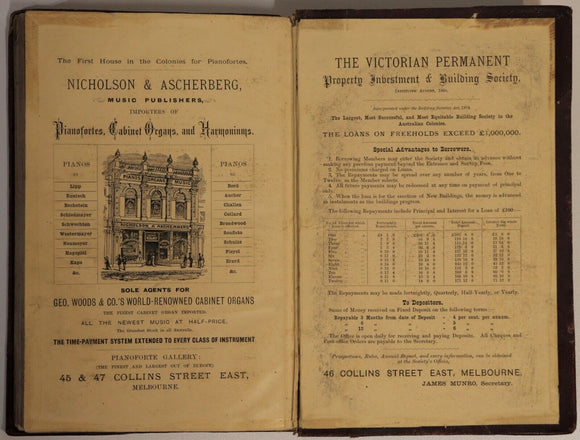 The First House in the Colonies for Pianofortes.
NICHOLSON & ASCHERBERG,
MUSIC PUBLISHERS,
IMPORTERS OF
Pianofortes, Cabinet Organs, and Harmoniums.
PIANOS
BY
Lipp
Rönisch
Bechstein
Schiedmayer
Schwechten
Westermayer
Neumeyer
Hagspiel
Kaps
&c.
PIANOS MUSIC
NICHOLSON & ASCHERBERG
PIANOS
BY
Bord
Aucher
Challen
Collard
Broadwood
Soufleto
Schultz
Pleyel
Erard
&c.
SOLE AGENTS FOR
GEO. WOODS & CO.'S WORLD-RENOWNED CABINET ORGANS
THE FINEST CABINET ORGAN IMPORTED.
ALL THE NEWEST MUSIC AT HALF-PRICE.
The Grandest Stock in all Australia.
THE TIME-PAYMENT SYSTEM EXTENDED TO EVERY CLASS OF INSTRUMENT
PIANOFORTE GALLERY:
(THE FINEST AND LARGEST OUT OF EUROPE)
45 & 47 COLLINS STREET EAST,
MELBOURNE.
THE VICTORIAN PERMANENT
Property Investment & Building Society,
Incorporated under the Building Society Act, 1874.
The Largest, Most Successful, and Most Equitable Building Society in the
Australian Colonies.
THE LOANS ON FREEHOLDS EXCEED £1,000,000.
Special Advantages to Borrowers.
1. Borrowing Members may enter the Society and obtain its advances without
making any previous payment beyond the Entrance and Survey Fees.
2. No premiums charged on Loans.
3. The Repayments may be spread over any number of years, from One to
Twelve, as the Member selects.
4. All future payments may be redeemed at any time on payment of principal
only.
5. When the loan is for the erection of New Buildings, the money is advanced
in instalments as the buildings progress.
The following Repayments include Principal and Interest for a Loan of £100
The Repayments may be made fortnightly, Quarterly, Half-Yearly, or Yearly.
To Depositors.
Sums of Money received on Fixed Deposit on the following terms:—
Repayable 3 Months from date of Deposit - 4 per cent. per annum.
The Office is open daily for receiving and paying Deposits. All Cheques and
Post-office Orders are payable to the Secretary.
Prospectuses, Rules, Annual Report, and every information, can be obtained
at the Society's Offices,
46 COLLINS STREET EAST, MELBOURNE.
JAMES MUNRO, Secretary.